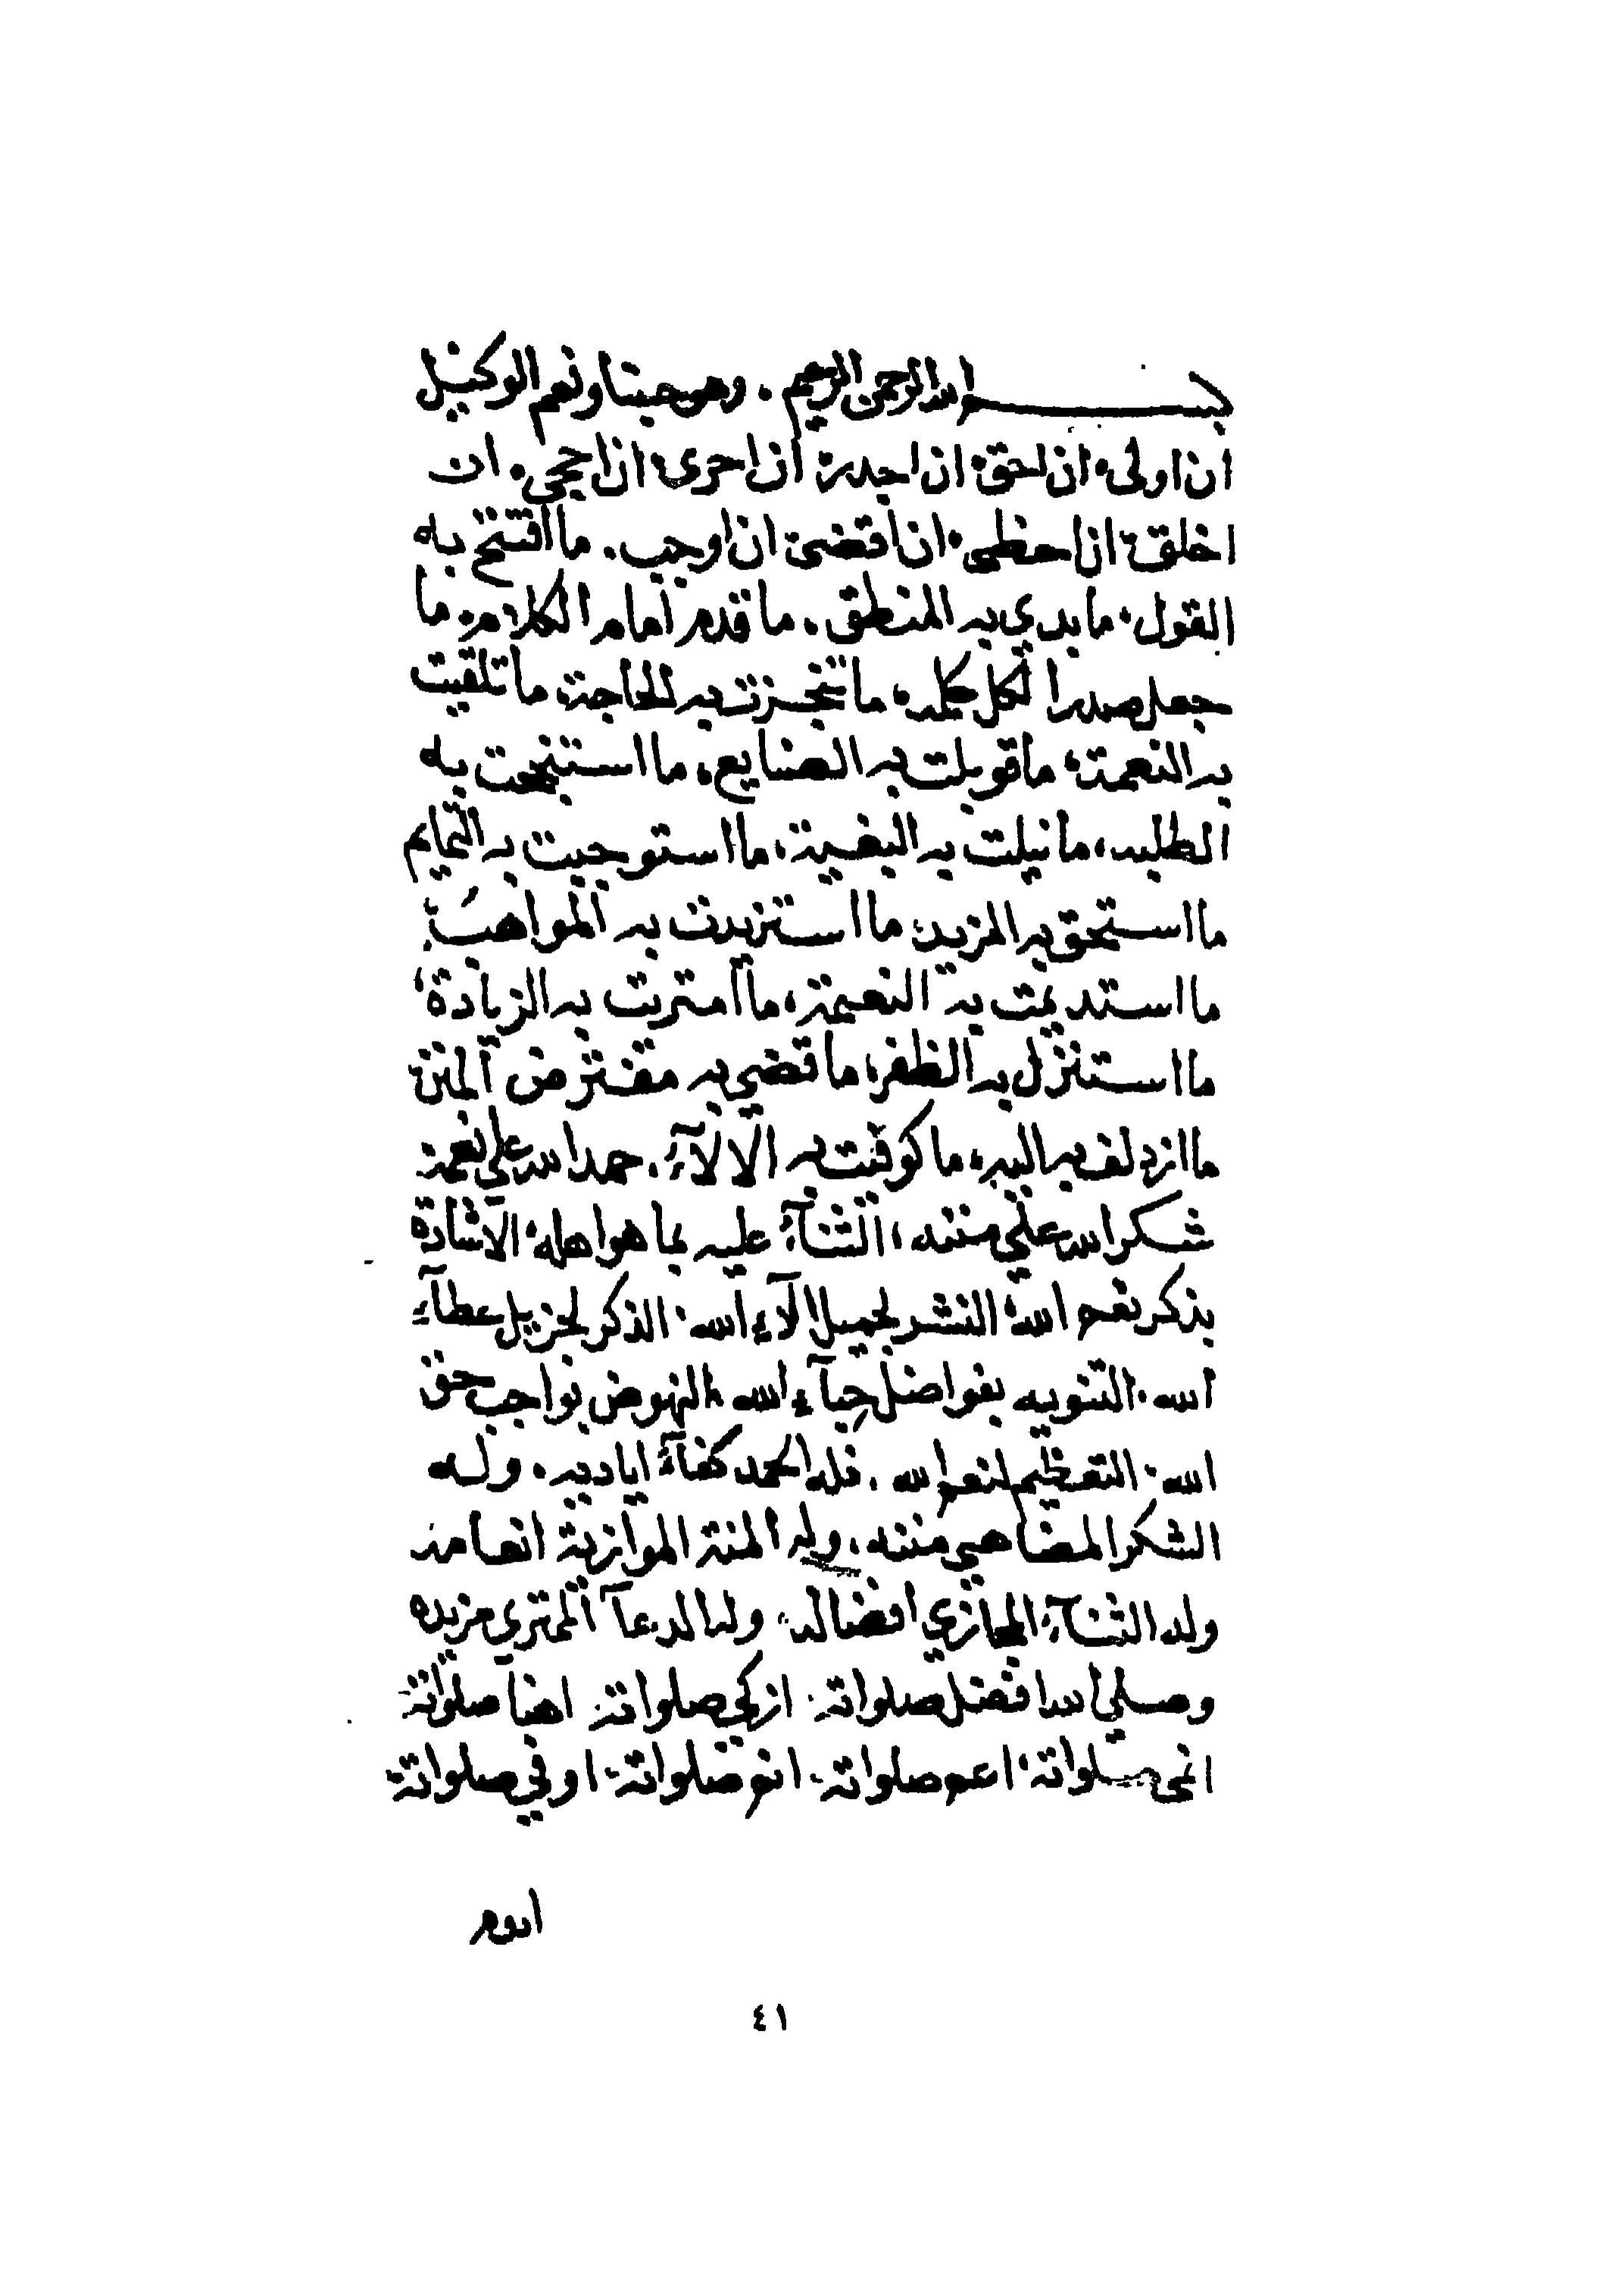 بسم الله الرحمن الرحيم . وهو حسبنا ونعم الوكيل
ان اولى، ان احق، ان اجدر، ان احرى، ان احجى، ان
اخلق، ان احظى، ان اقضى، ان اوجب . ما افتتح به
القول، ما بدي به المنطق، ما قدم امام الكلام، ما
جعل صدرا لكل كلمه، ما تنجزت به الحاجة، ما تلقيت
به النعمة، ما قوبلت به الصنايع، ما استنجحت به
الطلبه، ما نيلت به البغية، ما استوجبت به التمايم
ما استحق به المزيد، ما استزيدت به المواهب،
ما استديمت به النعيمة، ما امتريت به الزيادة،
ما استنزل به الظفر، ما قضي به مفترض المنن،
ما ازدلف به اليه، ما كوفيت به الالآء . حمد الله على نعمه
شكر الله على مننه، الثنآء عليه بما هو اهله، الاشادة
بذكر نعم الله، النشر لجميل الآء الله، الذكر لجزيل عطآء
الله، التنويه بفواضل حبآء الله، النهوض بواجب حق
الله، التعظيم لنعم الله . فله الحمد كفآء اياديه، وله
الشكر المضاهي مننه، وله المنة الموازية انعامه
وله الثنآء المجازي افضاله، وله الدعآ الممتري مزيده
وصلى الله افضل صلواته، ازكى صلواته، اهنأ صلواته،
انمى صلواته، اعم صلواته، اتم صلواته، اوفى صلواته،
ادوم
٤١